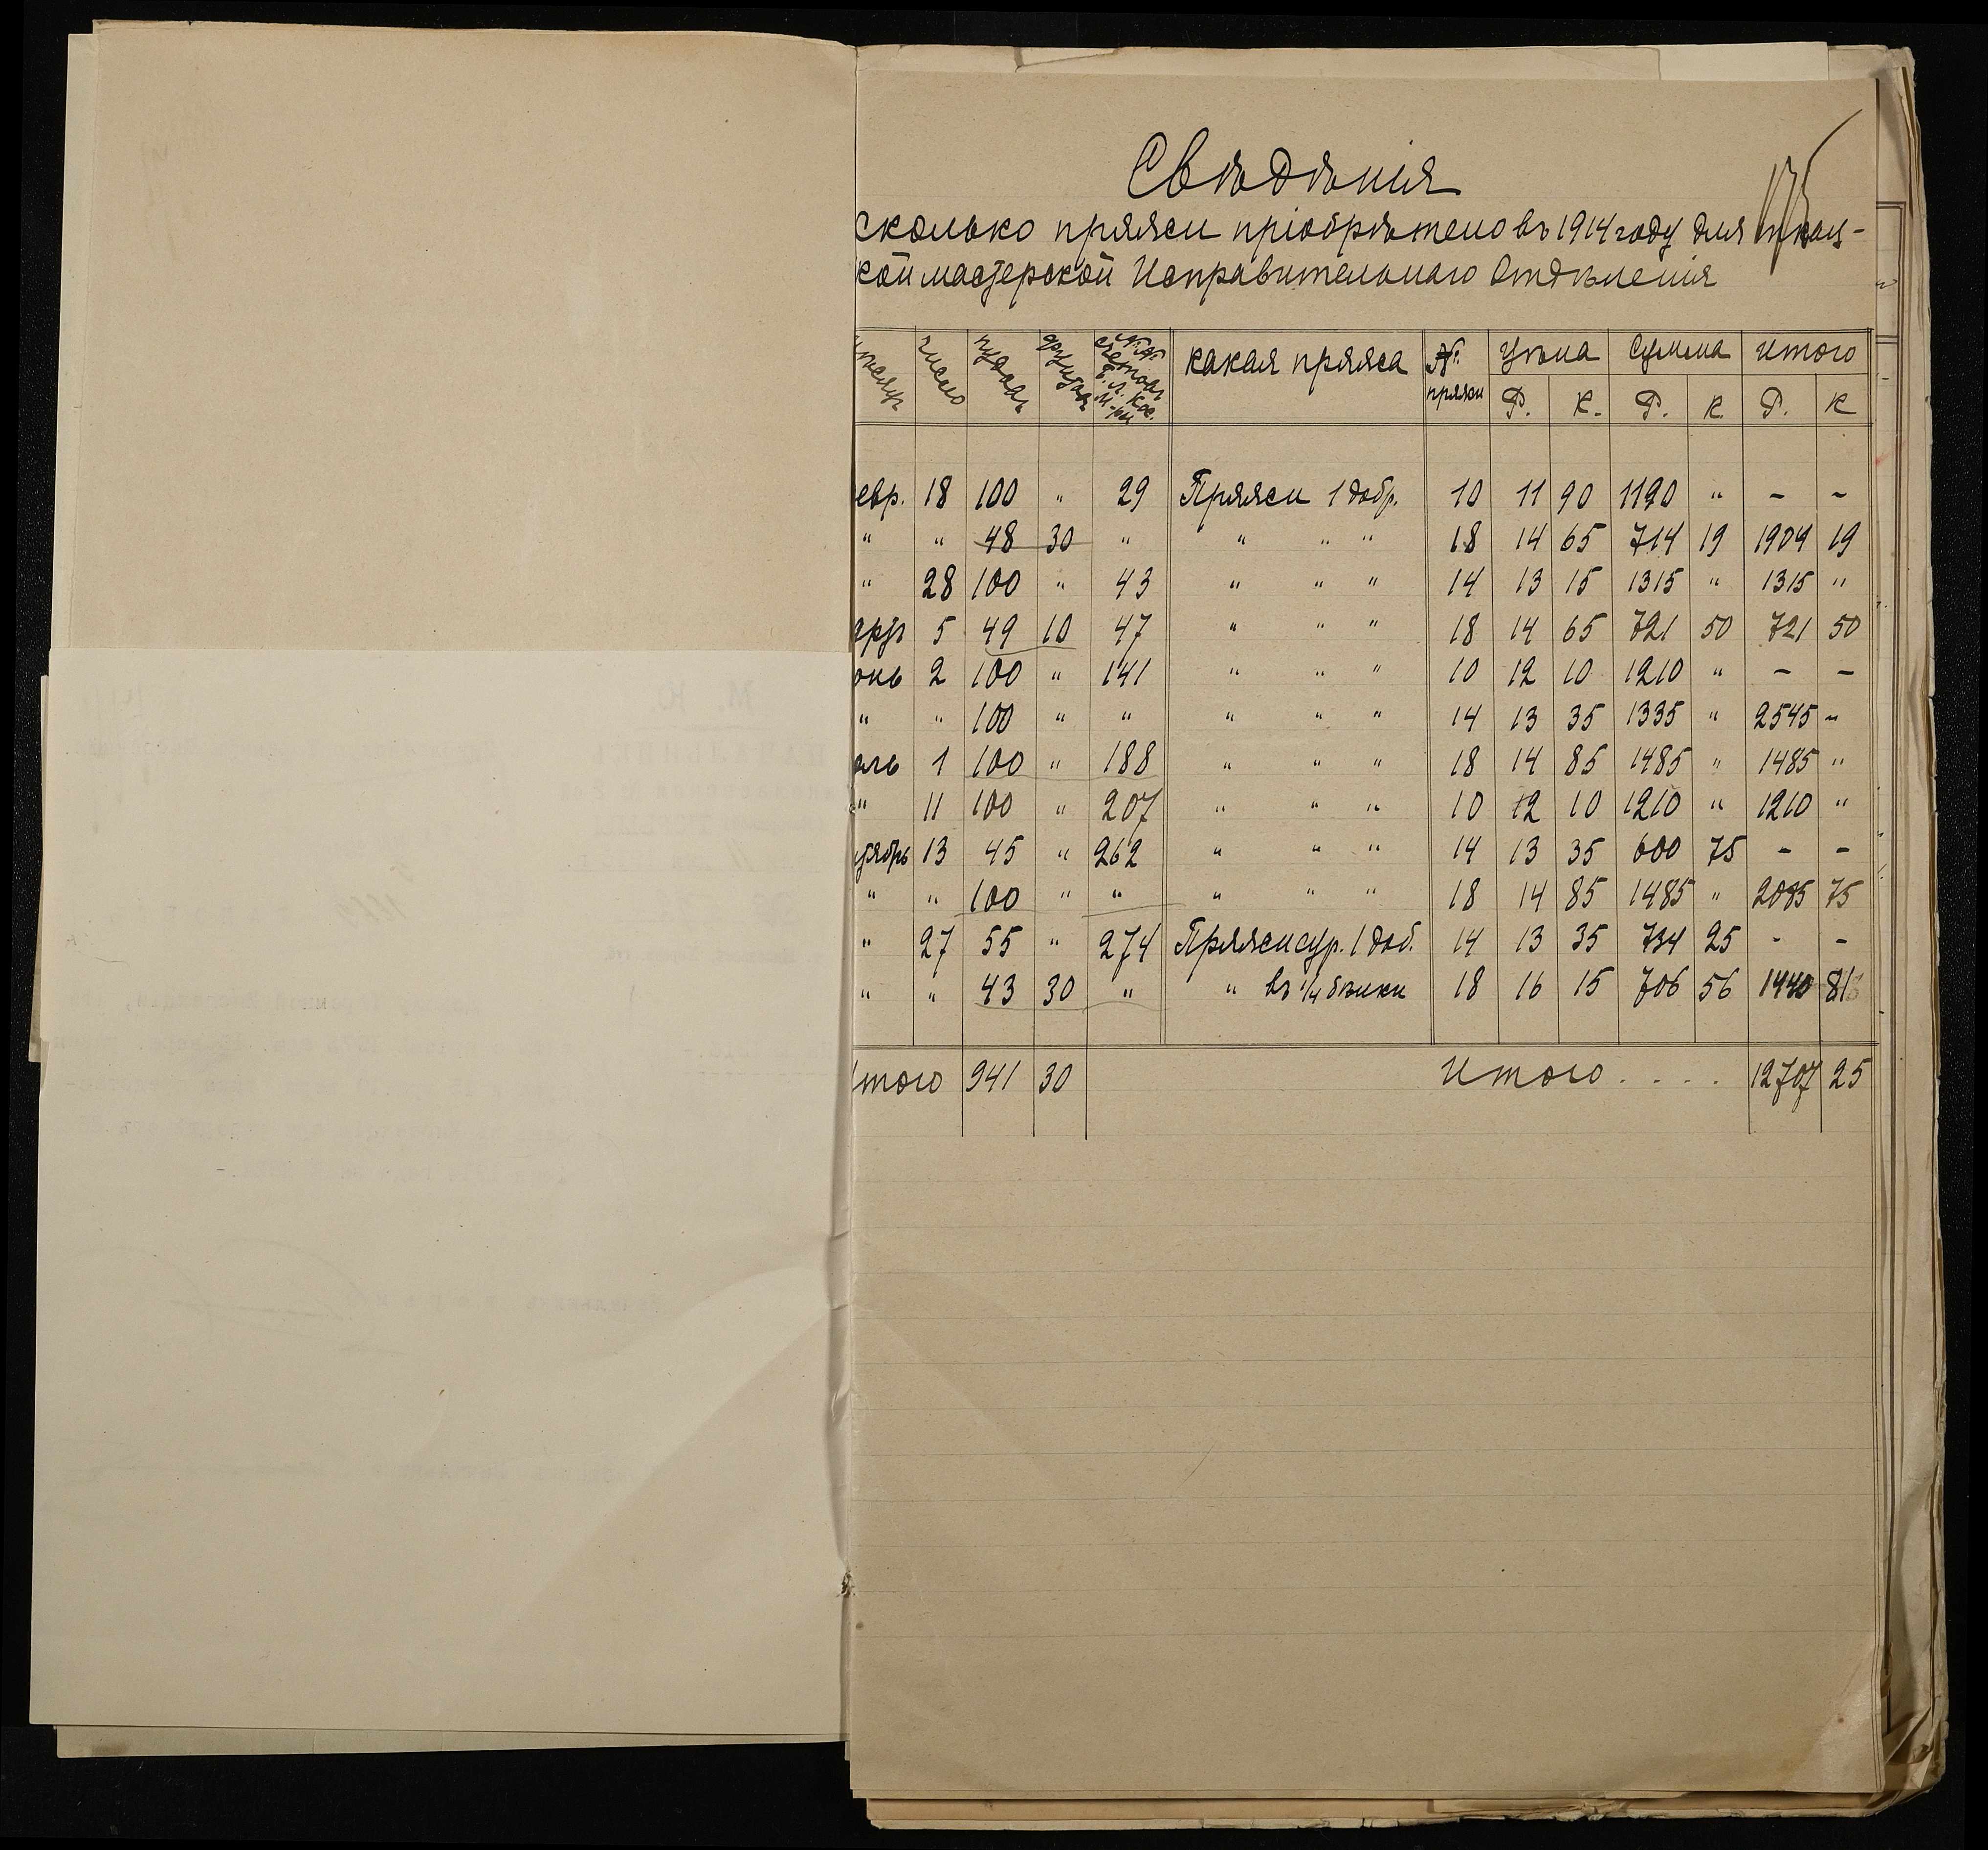 175
Свѣдѣнія
сколько пряжи пріобрѣтено въ 1914 году для ткац-
кой мастерской Исправительнаго Отдѣленія
мѣсяцъ число пудовъ фунтовъ №№ счетовъ Т. Л. Кос. М-ры какая пряжа №. пряжи Цѣна Сумма Итого
Р. К. Р. К. Р. К
евр. 18 100 " 29 Пряжи 1 добр. 10 11 90 1190 " - -
" " 48 30 " " " " 18 14 65 714 19 1904 19
" 28 100 " 43 " " " 14 13 15 1315 " 1315 "
артъ 5 49 10 47 " " " 18 14 65 721 50 721 50
юнь 2 100 " 141 " " " 10 12 10 1210 " - -
" " 100 " " " " " 14 13 35 1335 " 2545 "
юль 1 100 " 188 " " " 18 14 85 1485 " 1485 "
" 11 100 " 207 " " " 10 12 10 1210 " 1210 "
тябрь 13 45 " 262 " " " 14 13 35 600 75 - -
" " 100 " " " " " 18 14 85 1485 " 2085 75
" 27 55 " 274 Пряжи сур. 1 доб. 14 13 35 734 25 - -
" " 43 30 " " въ 1/4 бѣлки 18 16 15 706 56 1440 81
Итого 941 30 Итого . . . . 12707 25